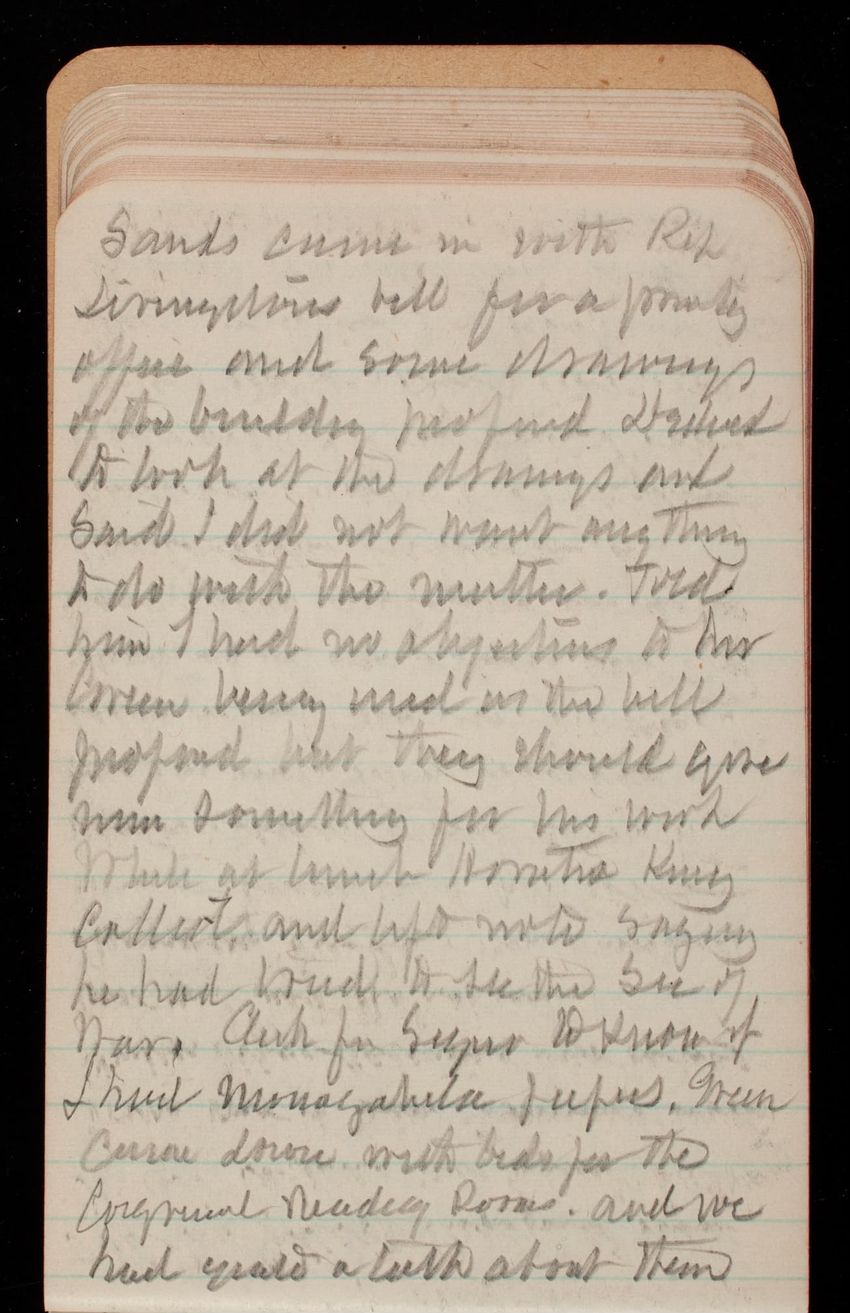 Sands came in with Rep
Livingstons bill for a printing
office and some drawings
of the building proposed. Declined
to look at the drawings and
Said I did not want anything
to do with the matter. Told
him I had no objections to his
being used in the bill
proposed but they should give
him something for his work
While at lunch Horatio King
Called, and left note Saying
he had tried to see the Sec of
War. Clerk fr Supro to know if
I had Monongahela papers. Green
Came down with bids for the
Congressional Reading Rooms. and we
had quite a talk about them